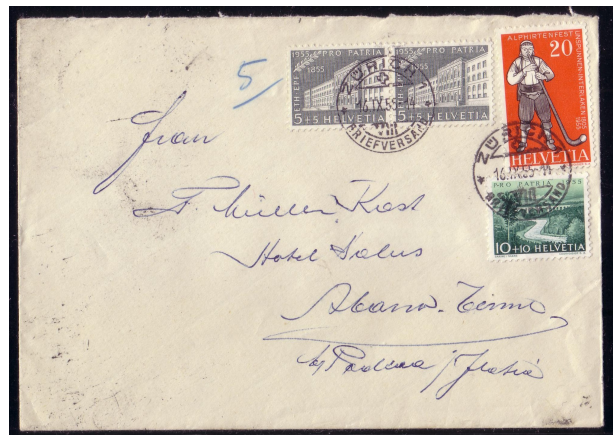 5
1955 PRO PATRIA 1855
ETH·EPF
5+5 HELVETIA
1955 PRO PATRIA 1855
5+5 HELVETIA
ZÜRICH
16.IX.55-14
VIII
BRIEFVERSAND
ALPHIRTENFEST
UNSPUNNEN-INTERLAKEN 1805 1955
20
HELVETIA
ZÜRICH
16.IX.55-14
PRO PATRIA 1955
10+10 HELVETIA
Frau
F. Müller Kost
Hotel Salus
Abano-Terme
b/ Padova / Italia